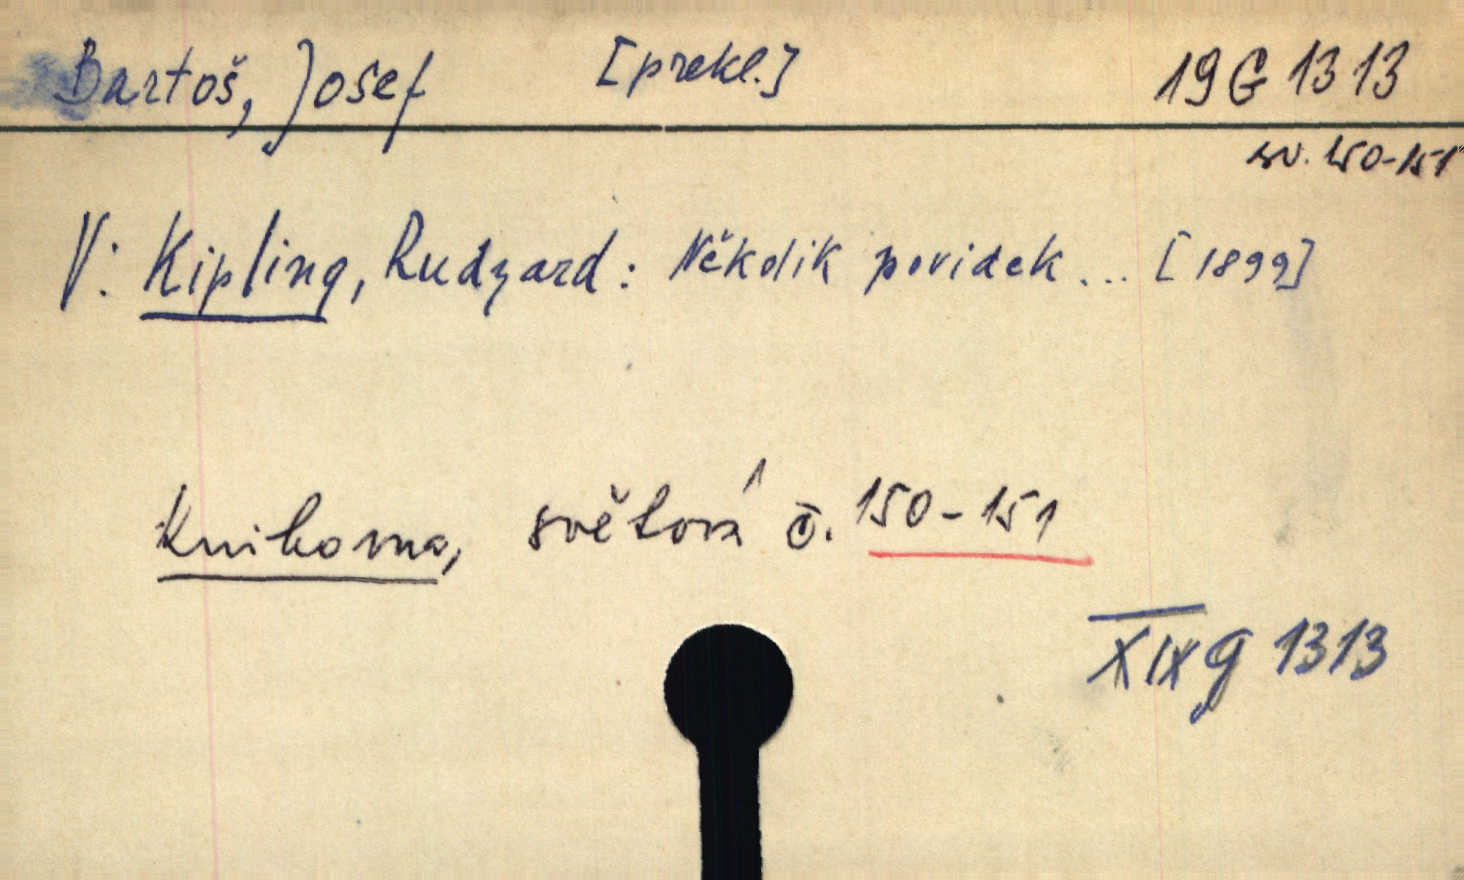 Bartoš, Josef [překl.] 19 G 1313
sv. 150-151
V: Kipling, Rudyard: Několik povidek ... [1899]
Knihovna, světová č. 150-151
XIX g 1313